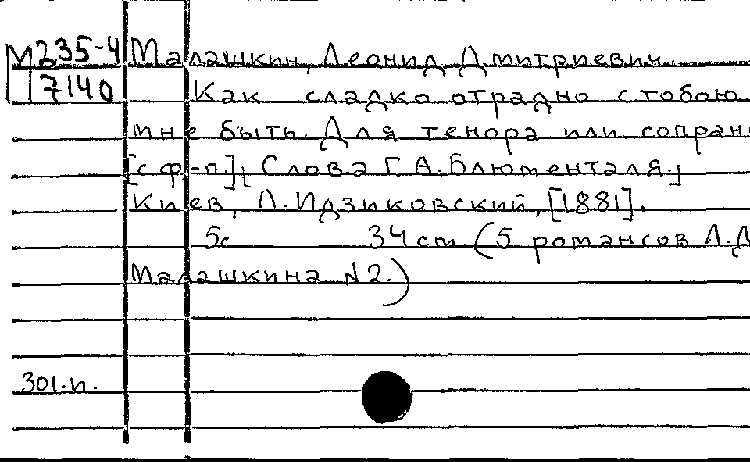 М235-4 Малашкин, Леонид Дмитриевич.
7140 Как сладко отрадно с тобою
мне быть. Для тенора или сопран
[с ф-п.], Слова Г.А.Блюменталя,
Киев, Л.Идзиковский, [1881].
5с 34 cm (5 романсов Л.Д
Малашкина №2.)
301.п.